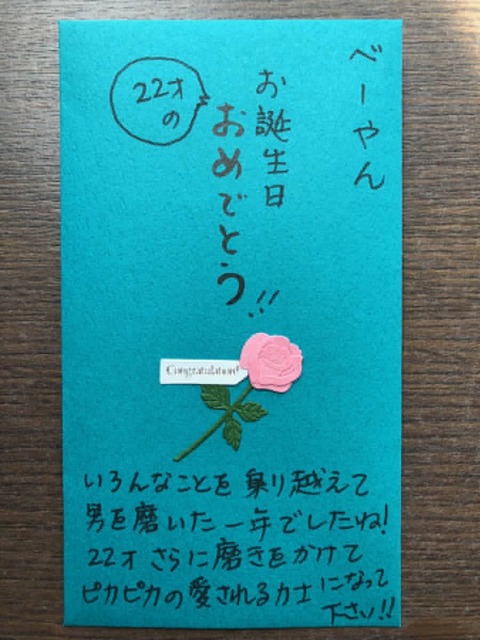 べーやん
22才
の
お誕生日
おめでとう!!
Congratulation!
いろんなことを乗り越えて
男を磨いた一年でしたね!
22才 さらに磨きをかけて
ピカピカの愛される力士になって
下さい!!